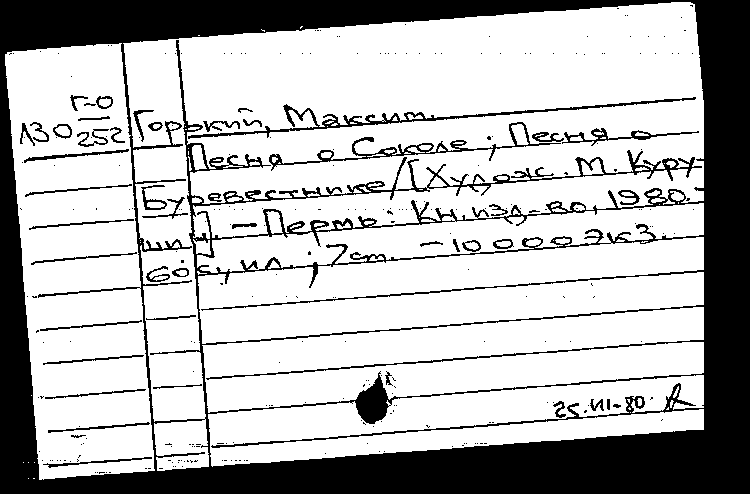 Г-0
130 252
Горький, Максим.
Песня о Соколе ; Песня о
Буревестнике / [Худож. М. Куру-
шин]. - Пермь: Кн. изд-во, 1980. -
60 с., ил. ; 7 см. - 10 000 экз.
25.VII-80.